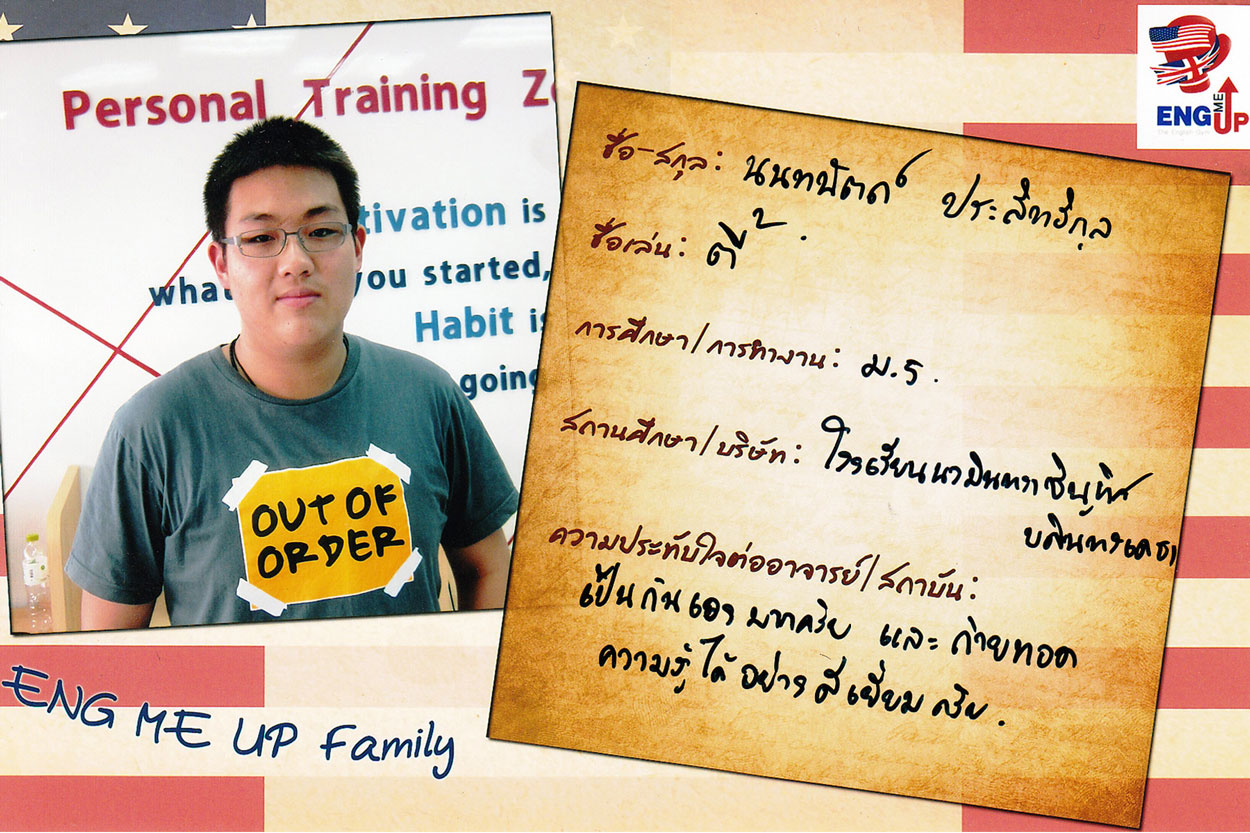 Personal Training Z
tivation is
wha you started,
Habit is
going
OUT OF
ORDER
ENG ME UP Family
ENG ME UP
The English Gym
ชื่อ-สกุล: นนทพัตถ์ ประสิทธิกุล
ชื่อเล่น: ตี๋
การศึกษา/การทำงาน: ม.5.
สถานศึกษา/บริษัท: โรงเรียนนวมินทราชินูทิศ
บดินทรเดชา
ความประทับใจต่ออาจารย์/สถาบัน:
เป็นกันเองมากครับ และ ถ่ายทอด
ความรู้ได้อย่างดีเยี่ยมครับ.